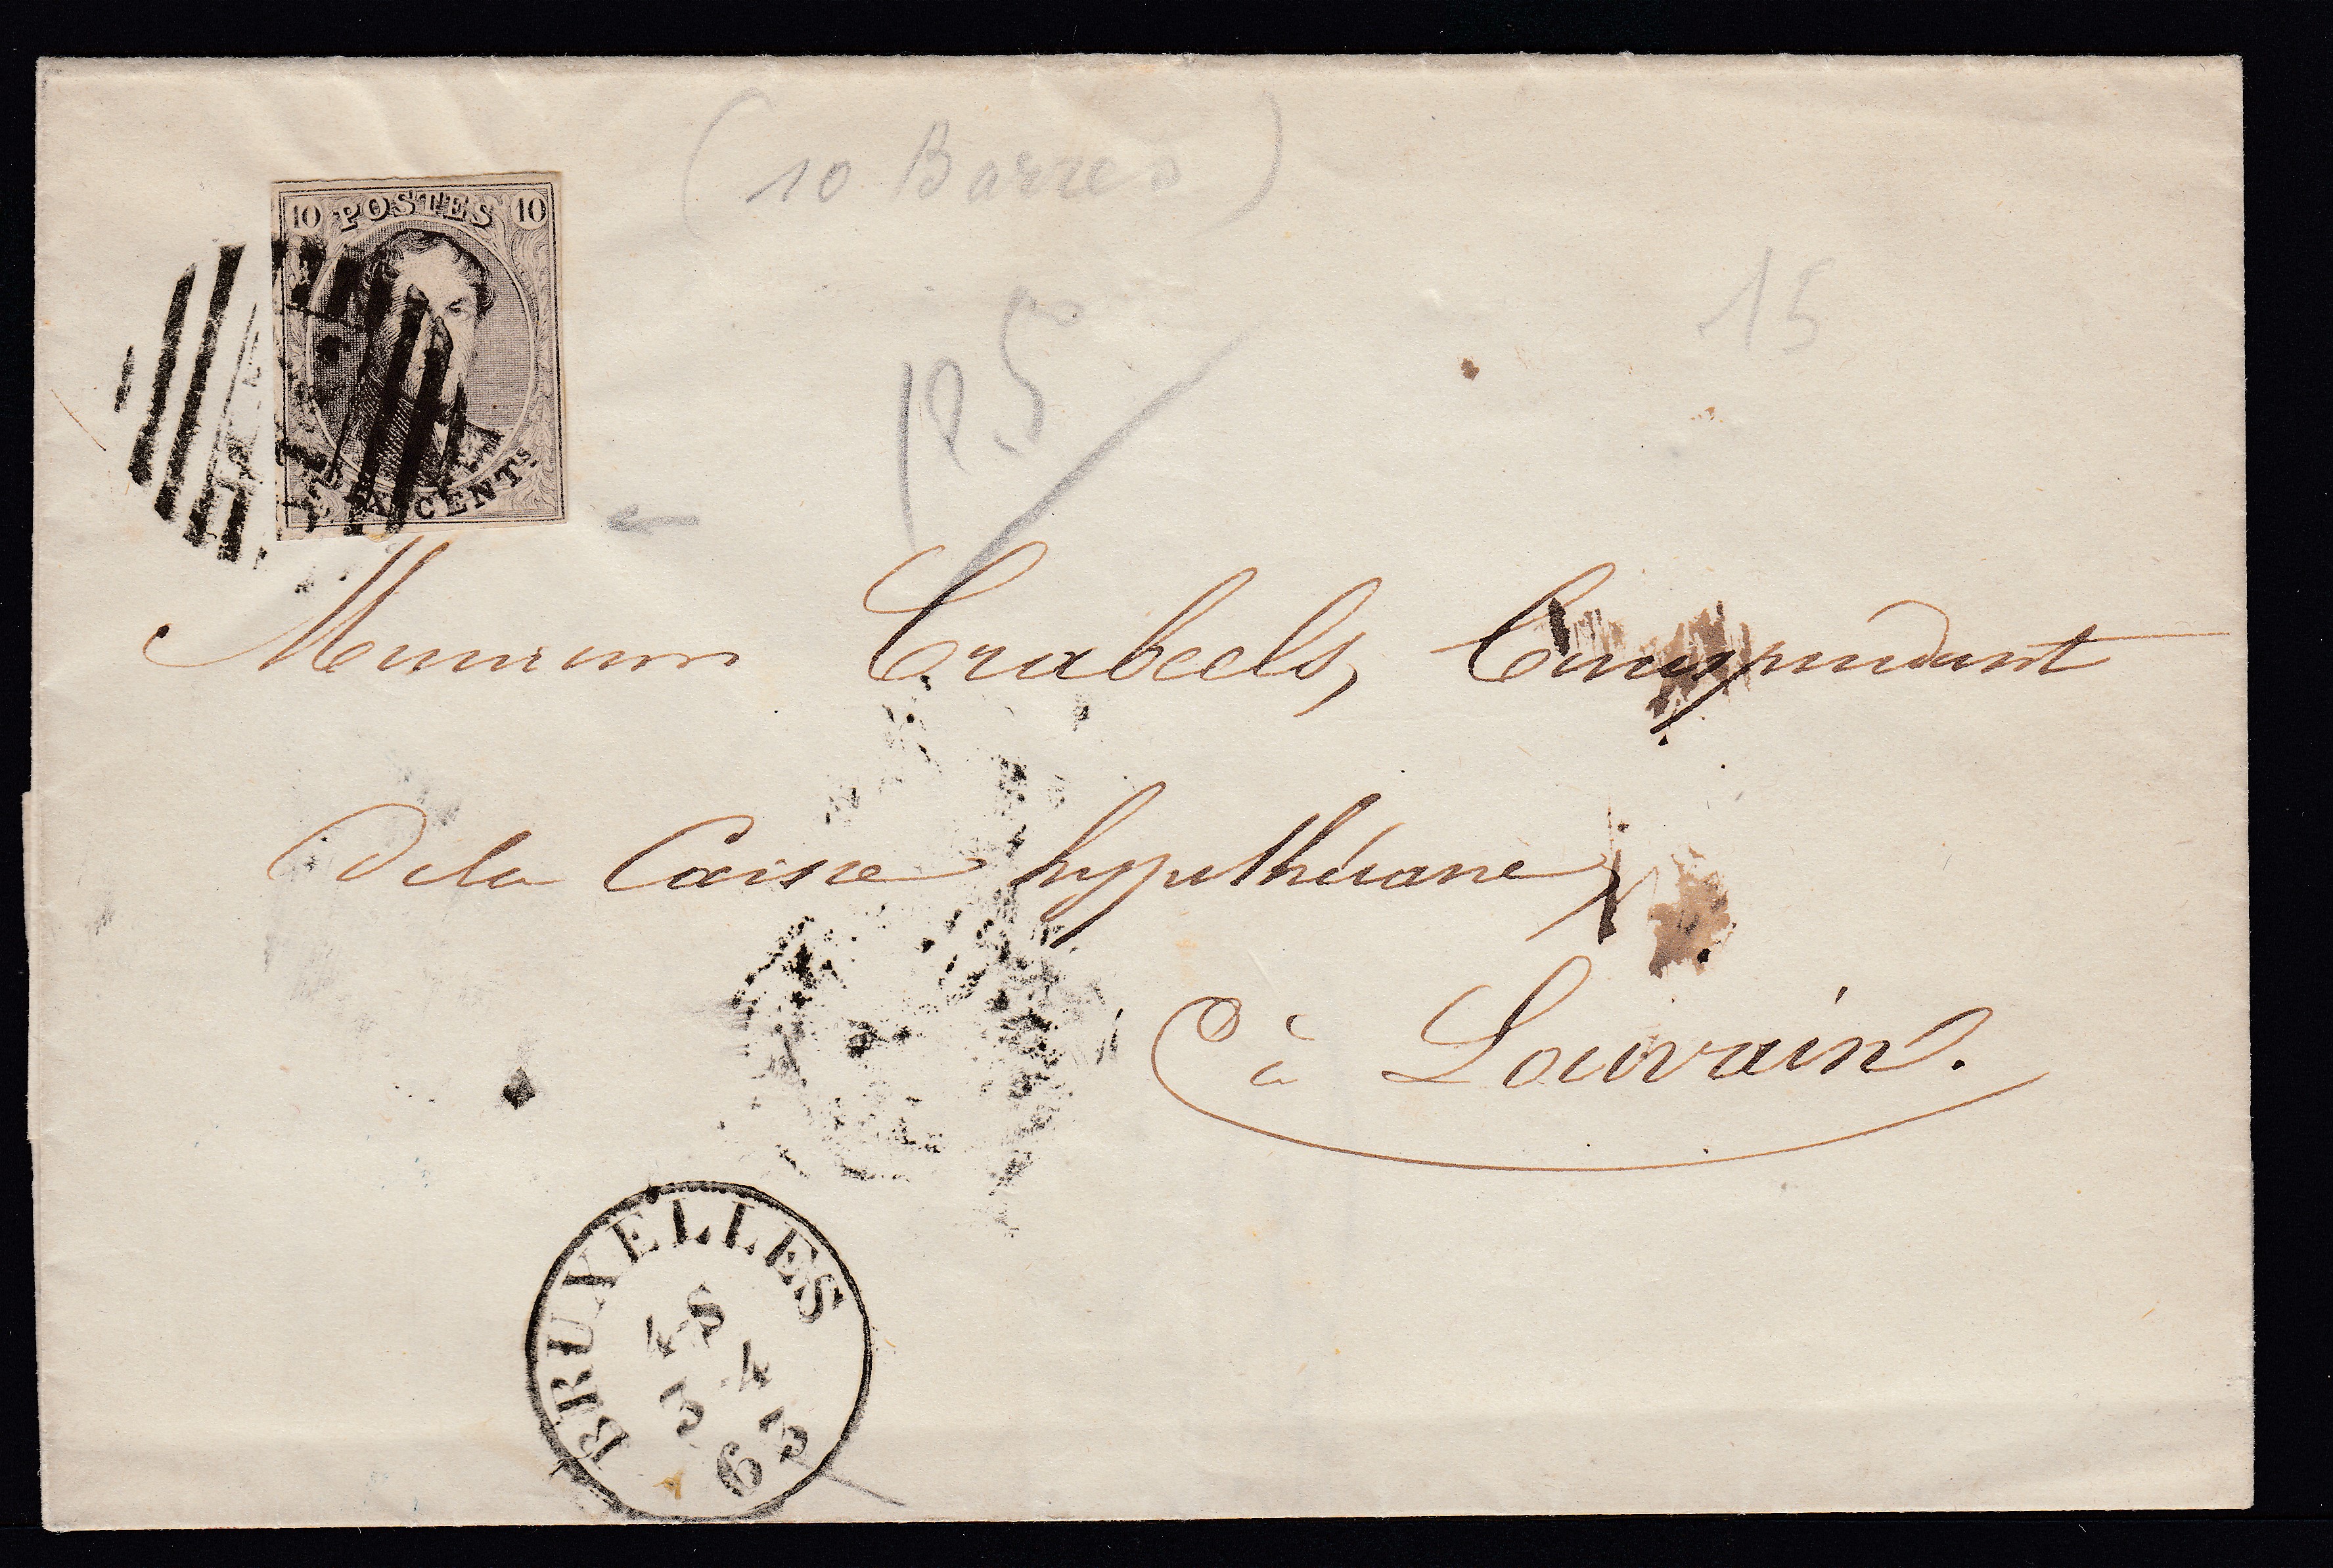 (10 Barres)
10 POSTES 10
15
CENTS
Monsieur Crabeels, Correspondant
de la Caisse hypothécaire
à Louvain.
BRUXELLES
4-S
3 4
63